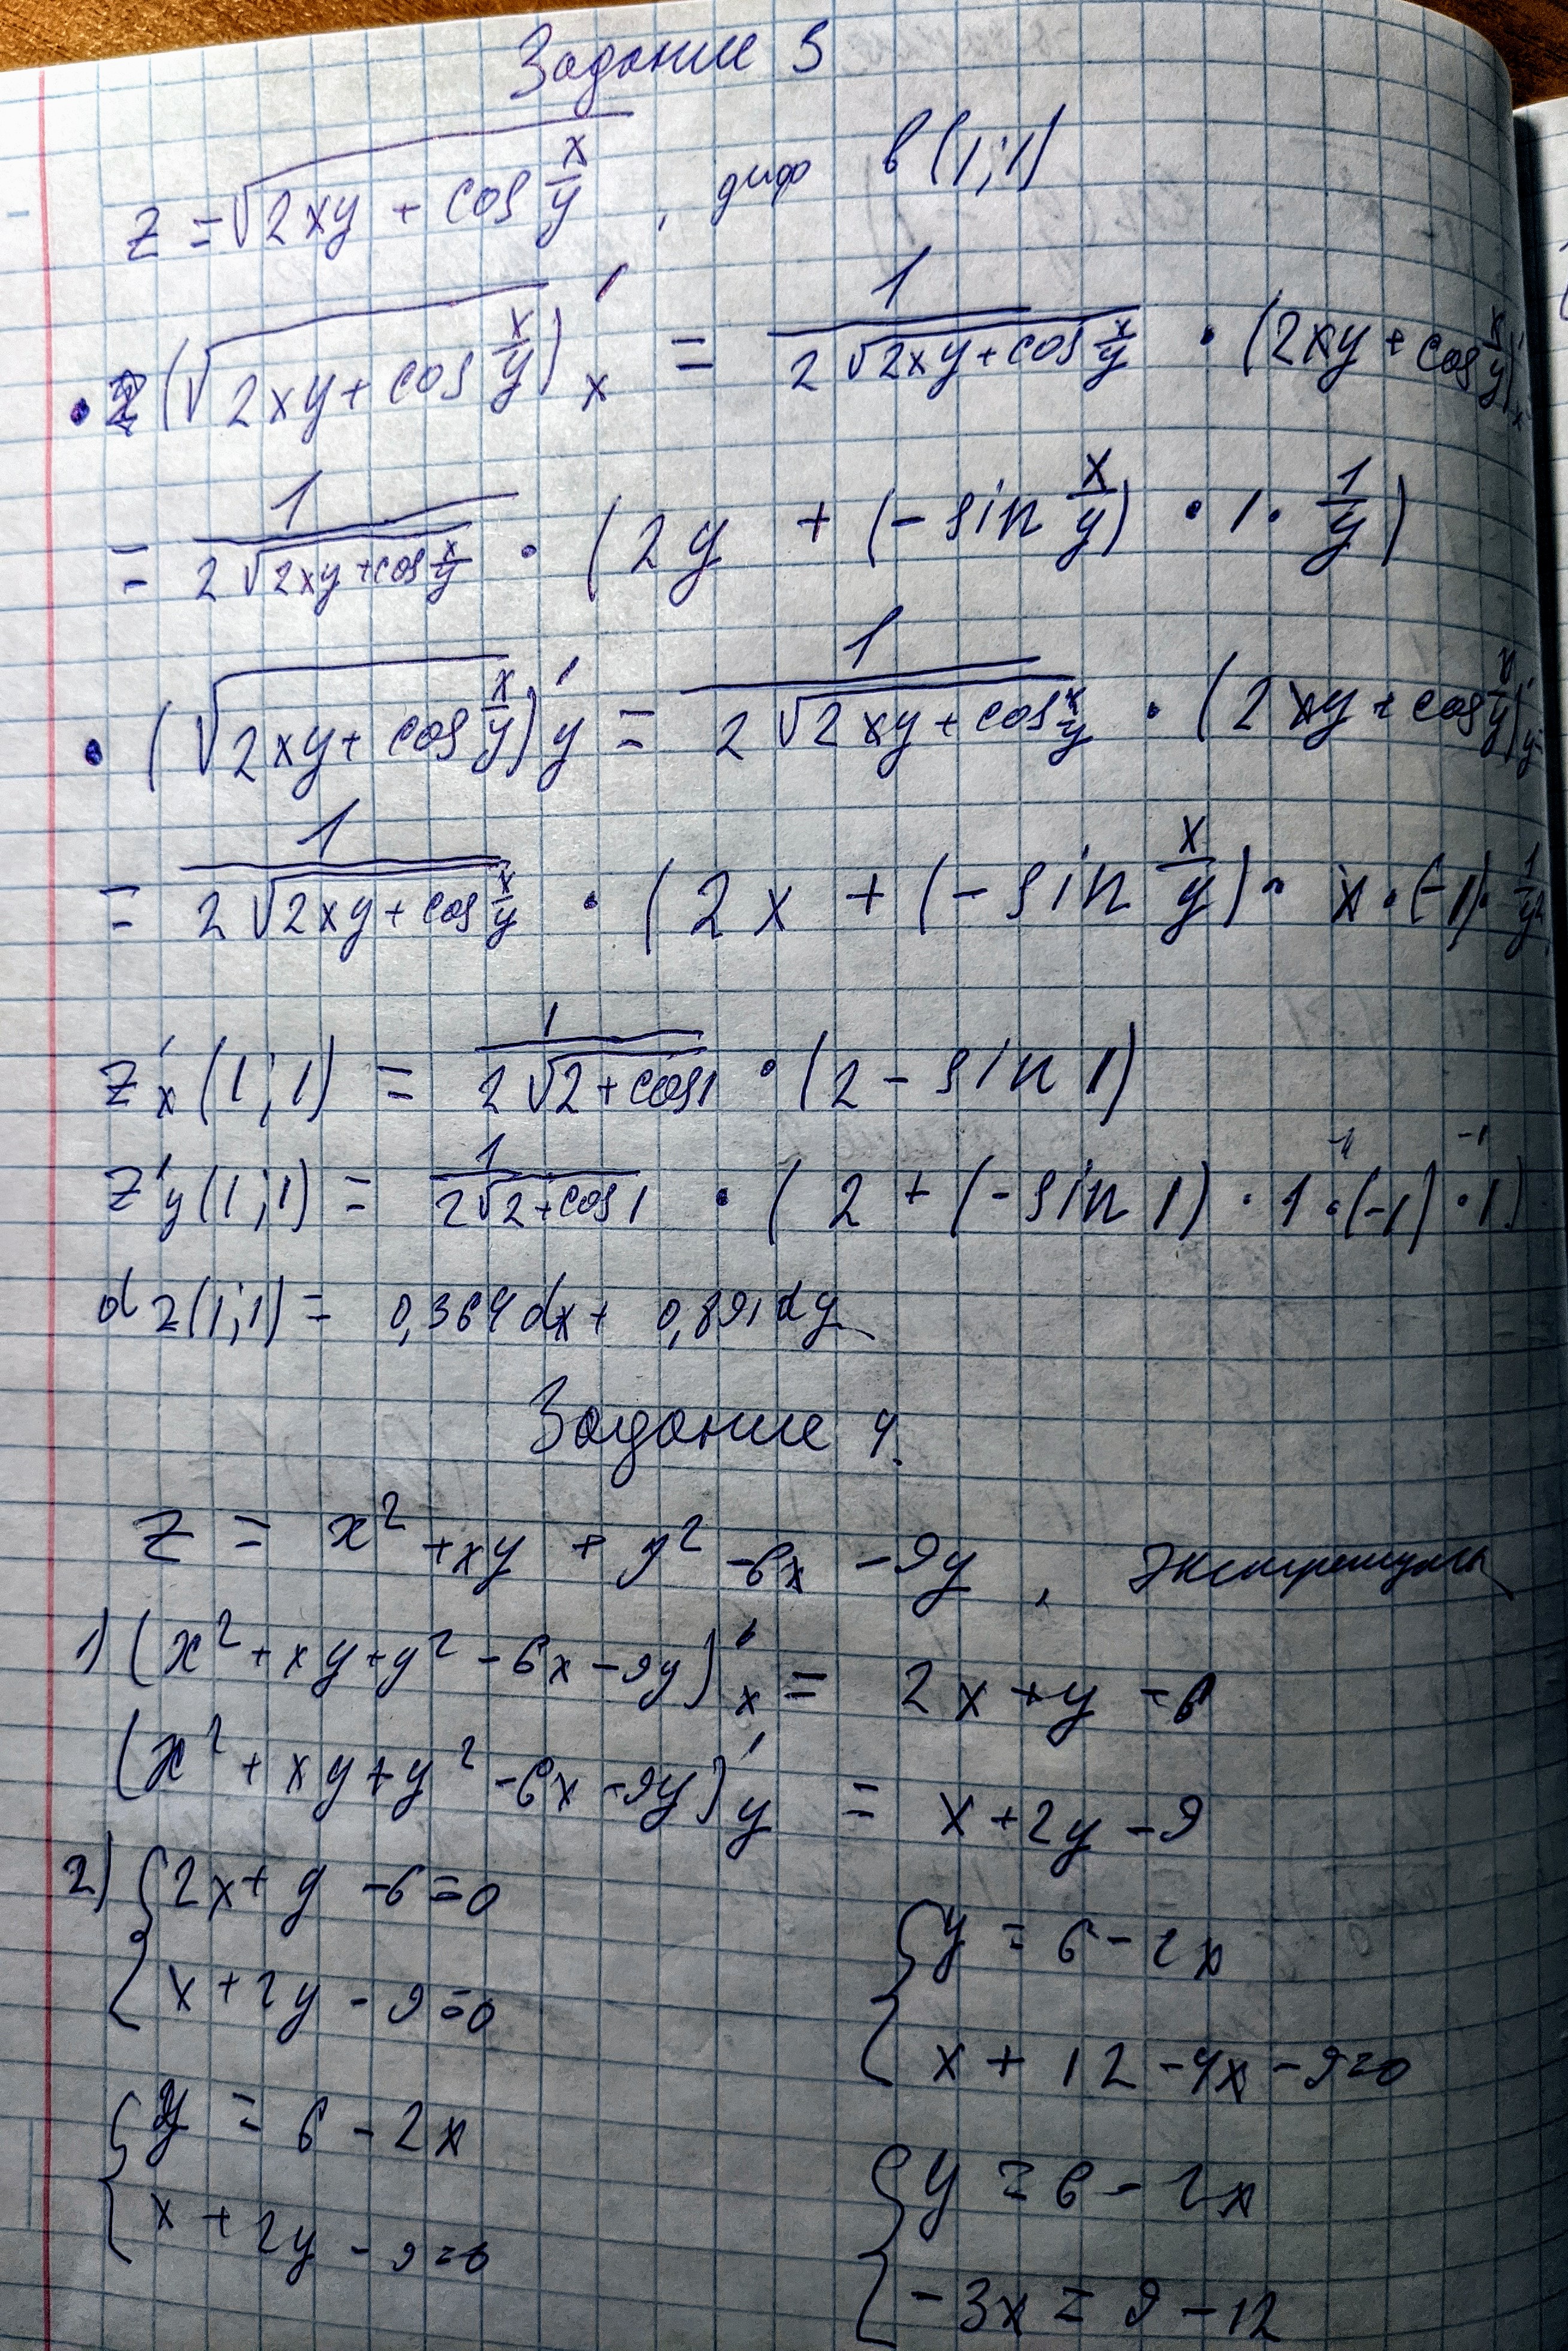 Задание 3
z = √(2xy + cos x/y) , диф в (1;1)
• (√(2xy + cos x/y))'x = 1/(2√(2xy + cos x/y)) • (2xy + cos x/y)'x
= 1/(2√(2xy + cos x/y)) • (2y + (-sin x/y) • 1 • 1/y)
• (√(2xy + cos x/y))'y = 1/(2√(2xy + cos x/y)) • (2xy + cos x/y)'y
= 1/(2√(2xy + cos x/y)) • (2x + (-sin x/y) • x • (-1) • 1/y²
z'x (1;1) = 1/(2√(2 + cos1)) • (2 - sin 1)
z'y (1;1) = 1/(2√(2 + cos1)) • (2 + (-sin 1) • 1 • (-1) • 1)
dz(1;1) = 0,364dx + 0,891dy
Задание 4.
z = x² + xy + y² - 6x - 9y , экстремумы
1) (x² + xy + y² - 6x - 9y)'x = 2x + y - 6
(x² + xy + y² - 6x - 9y)'y = x + 2y - 9
2) { 2x + y - 6 = 0
x + 2y - 9 = 0
{ y = 6 - 2x
x + 2y - 9 = 0
{ y = 6 - 2x
x + 12 - 4x - 9 = 0
{ y = 6 - 2x
-3x = 9 - 12